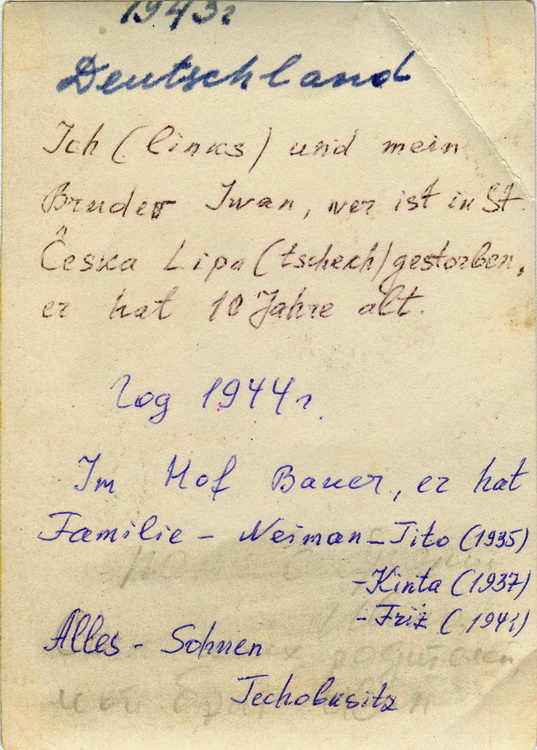 1943г
Deutschland
Ich (links) und mein
Bruder Iwan, wer ist in St.
Česka Lipa (tschech) gestorben,
er hat 10 Jahre alt.
год 1944 г.
Im Hof Bauer, er hat
Familie - Neiman - Tito (1935)
- Kinta (1937)
- Friz (1941)
Alles - Sohnen
Techobusitz
родителей
мой брат